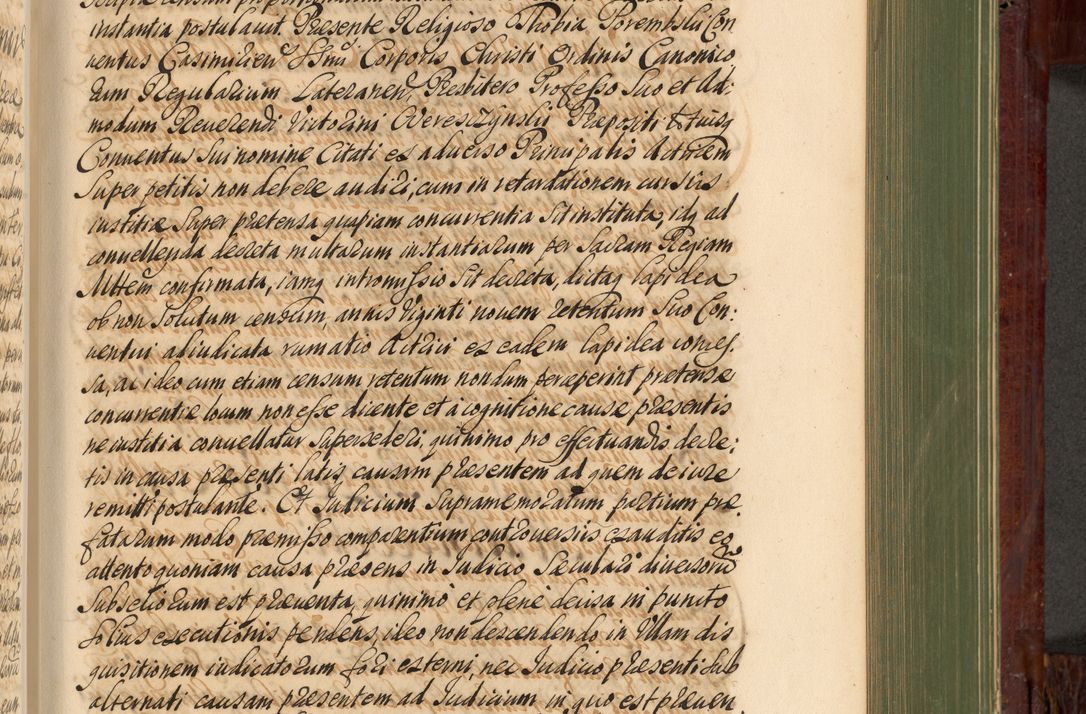 instantia postulavit. Præsente Religioso Thobia Porembski Con
ventus Casimirien Ssmi Corporis Christi Ordinis Canonico
rum Regularium Lateranen Presbitero Professo Suo et Ad:
modum Reverendi Victorini Wereszczynski Præpositi totiusq
Conventus Sui nomine Citati ex adverso Principalis Actorem
Super petitis non debere audiri, cum in retardationem cursus
iustitiæ Super prætensa quapiam concurrentia Sit instituta, idq ad
convellenda decreta multarum instantiarum per Sacram Regiam
Mttem confirmata, iamq intromissio Sit decreta, dictaq lapidea
ob non Solutum censum, annis Viginti novem retentum Suo Con:
ventui adiudicata rumatio Actrici ex eadem lapidea conces
sa, ac ideo cum etiam censum retentum nondum perceperint prætensæ
concurrentiæ locum non esse dicente et a cognitione causæ præsentis
ne iustitia convellatur Supersederi, quinimo pro effectuandis decre:
tis in causa præsenti latis causam præsentem ad quem de iure
remitti postulante. Et Judicium Supramemoratum partium præ
fatarum modo præmisso comparentium controversiis exauditis ex
attento quoniam causa præsens in Judicio Sæculari diversorum
Subseliorum est præventa, quinimo et plene decisa in puncto
solius executionis pendens, ideo non descendendo in Ullam dis
quisitionem iudicatorum fori externi, nec Judicio præsenti Sub
alternati causam præsentem ad Judicium in quo est præven